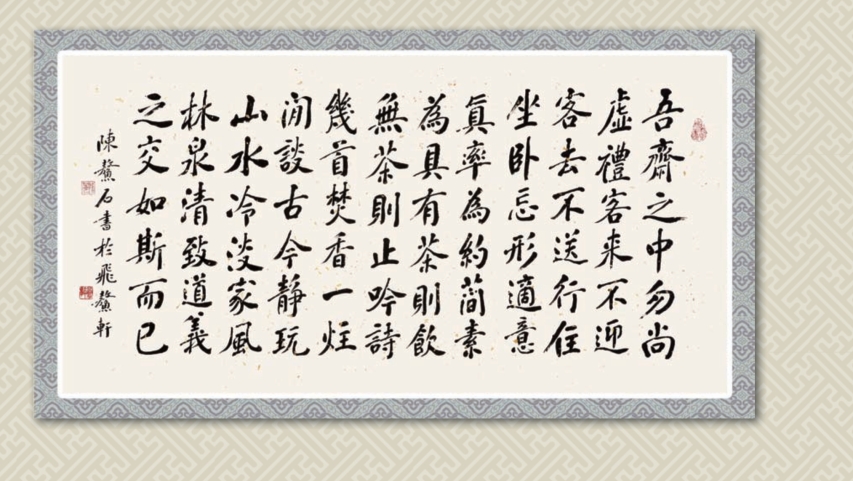 吾齋之中勿尚
虛禮客来不迎
客去不送行住
坐卧忘形適意
真率為約蕳素
為具有茶則飲
無茶則止吟詩
幾首焚香一炷
閒談古今靜玩
山水冷淡家風
林泉清致道義
之交如斯而已
陳鰲石書於飛鰲軒